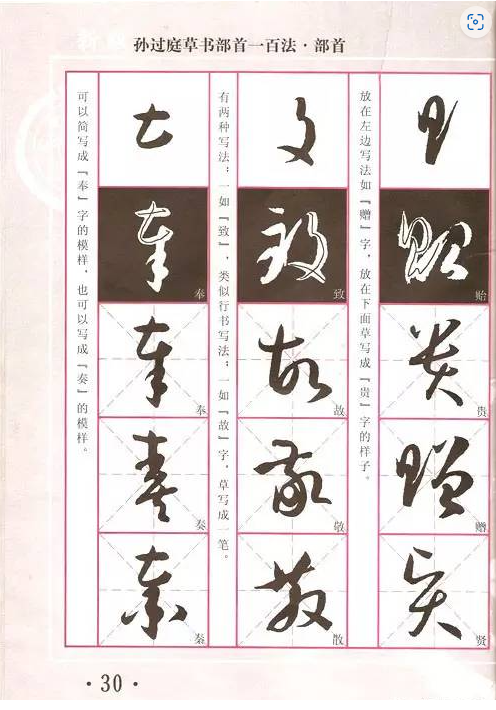 孙过庭草书部首一百法·部首
贻
贵
赠
贤
放在左边写法如『赠』字，放在下面草写成『贵』字的样子。
致
故
敬
散
有两种写法：一如『致』，类似行书写法；一如『故』字，草写成一笔。
奉
奉
奏
秦
可以简写成『奉』字的模样，也可以写成『奏』的模样。
·30·